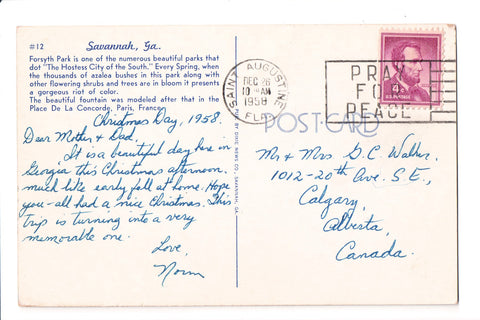 #12 Savannah, Ga.
Forsyth Park is one of the numerous beautiful parks that
dot "The Hostess City of the South." Every Spring, when
the thousands of azalea bushes in this park along with
other flowering shrubs and trees are in bloom it presents
a gorgeous riot of color.
The beautiful fountain was modeled after that in the
Place De La Concorde, Paris, France.
Christmas Day, 1958.
Dear Mother & Dad,
It is a beautiful day here in
Georgia this Christmas afternoon,
much like early fall at home. Hope
you-all had a nice Christmas. This
trip is turning into a very
memorable one.
Love,
Norm
SAINT AUGUSTINE
DEC 26
10 AM
1958
FLA.
PRAY
FOR
PEACE
4¢
U.S. POSTAGE
POST CARD
Mr & Mrs G. C. Walker,
1012-20th Ave. S.E.,
Calgary,
Alberta,
Canada.